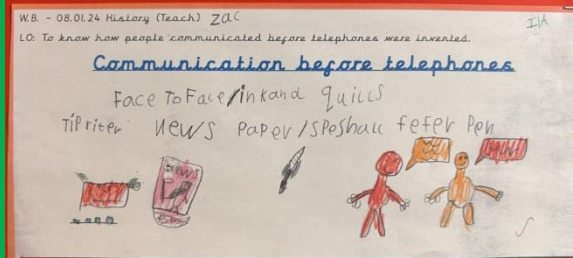 W.B. - 08.01.24 History (Teach) zac
IIA
LO: To know how people communicated before telephones were invented.
Communication before telephones
Face To Face/inkand quills
TiPriter News PaPer/SPeshall fefer Pen